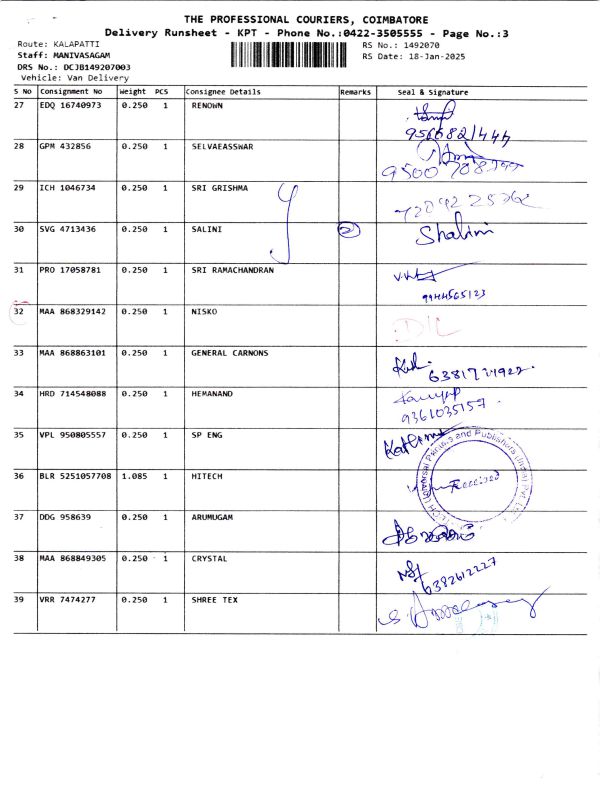 THE PROFESSIONAL COURIERS, COIMBATORE
Delivery Runsheet - KPT - Phone No.:0422-3505555 - Page No.:3
Route: KALAPATTI
RS No.: 1492070
Staff: MANIVASAGAM
RS Date: 18-Jan-2025
DRS No.: DCJB149207003
Vehicle: Van Delivery
S No Consignment No Weight PCS Consignee Details Remarks Seal & Signature
27 EDQ 16740973 0.250 1 RENOWN
28 GPM 432856 0.250 1 SELVAEASSWAR
29 ICH 1046734 0.250 1 SRI GRISHMA
30 SVG 4713436 0.250 1 SALINI 2 Shalini
31 PRO 17058781 0.250 1 SRI RAMACHANDRAN
9944565123
32 MAA 868329142 0.250 1 NISKO D/L
33 MAA 868863101 0.250 1 GENERAL CARNONS
34 HRD 714548088 0.250 1 HEMANAND
9361035157
35 VPL 950805557 0.250 1 SP ENG
36 BLR 5251057708 1.085 1 HITECH Received
37 DDG 958639 0.250 1 ARUMUGAM
38 MAA 868849305 0.250 1 CRYSTAL
6382612227
39 VRR 7474277 0.250 1 SHREE TEX